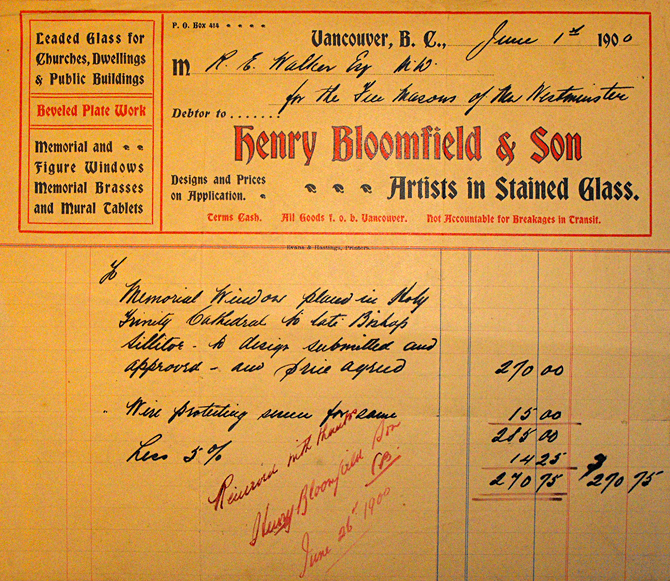 P. O. Box 414
Leaded Glass for
Churches, Dwellings
& Public Buildings
Beveled Plate Work
Memorial and
Figure Windows
Memorial Brasses
and Mural Tablets
Vancouver, B. C., June 1st 1900
M R. E. Walker Esq N.W.
for the Free Masons of New Westminster
Debtor to .......
Henry Bloomfield & Son
Designs and Prices
on Application.
Artists in Stained Glass.
Terms Cash. All Goods f. o. b. Vancouver. Not Accountable for Breakages in Transit.
Evans & Hastings, Printers
To
Memorial Window placed in Holy
Trinity Cathedral to late Bishop
Sillitoe - to design submitted and
approved - and price agreed 270 00
Wire protecting screen for same 15 00
285 00
Less 5% 14 25
270 75 $ 270 75
Received with thanks
Henry Bloomfield Son
June 26t 1900